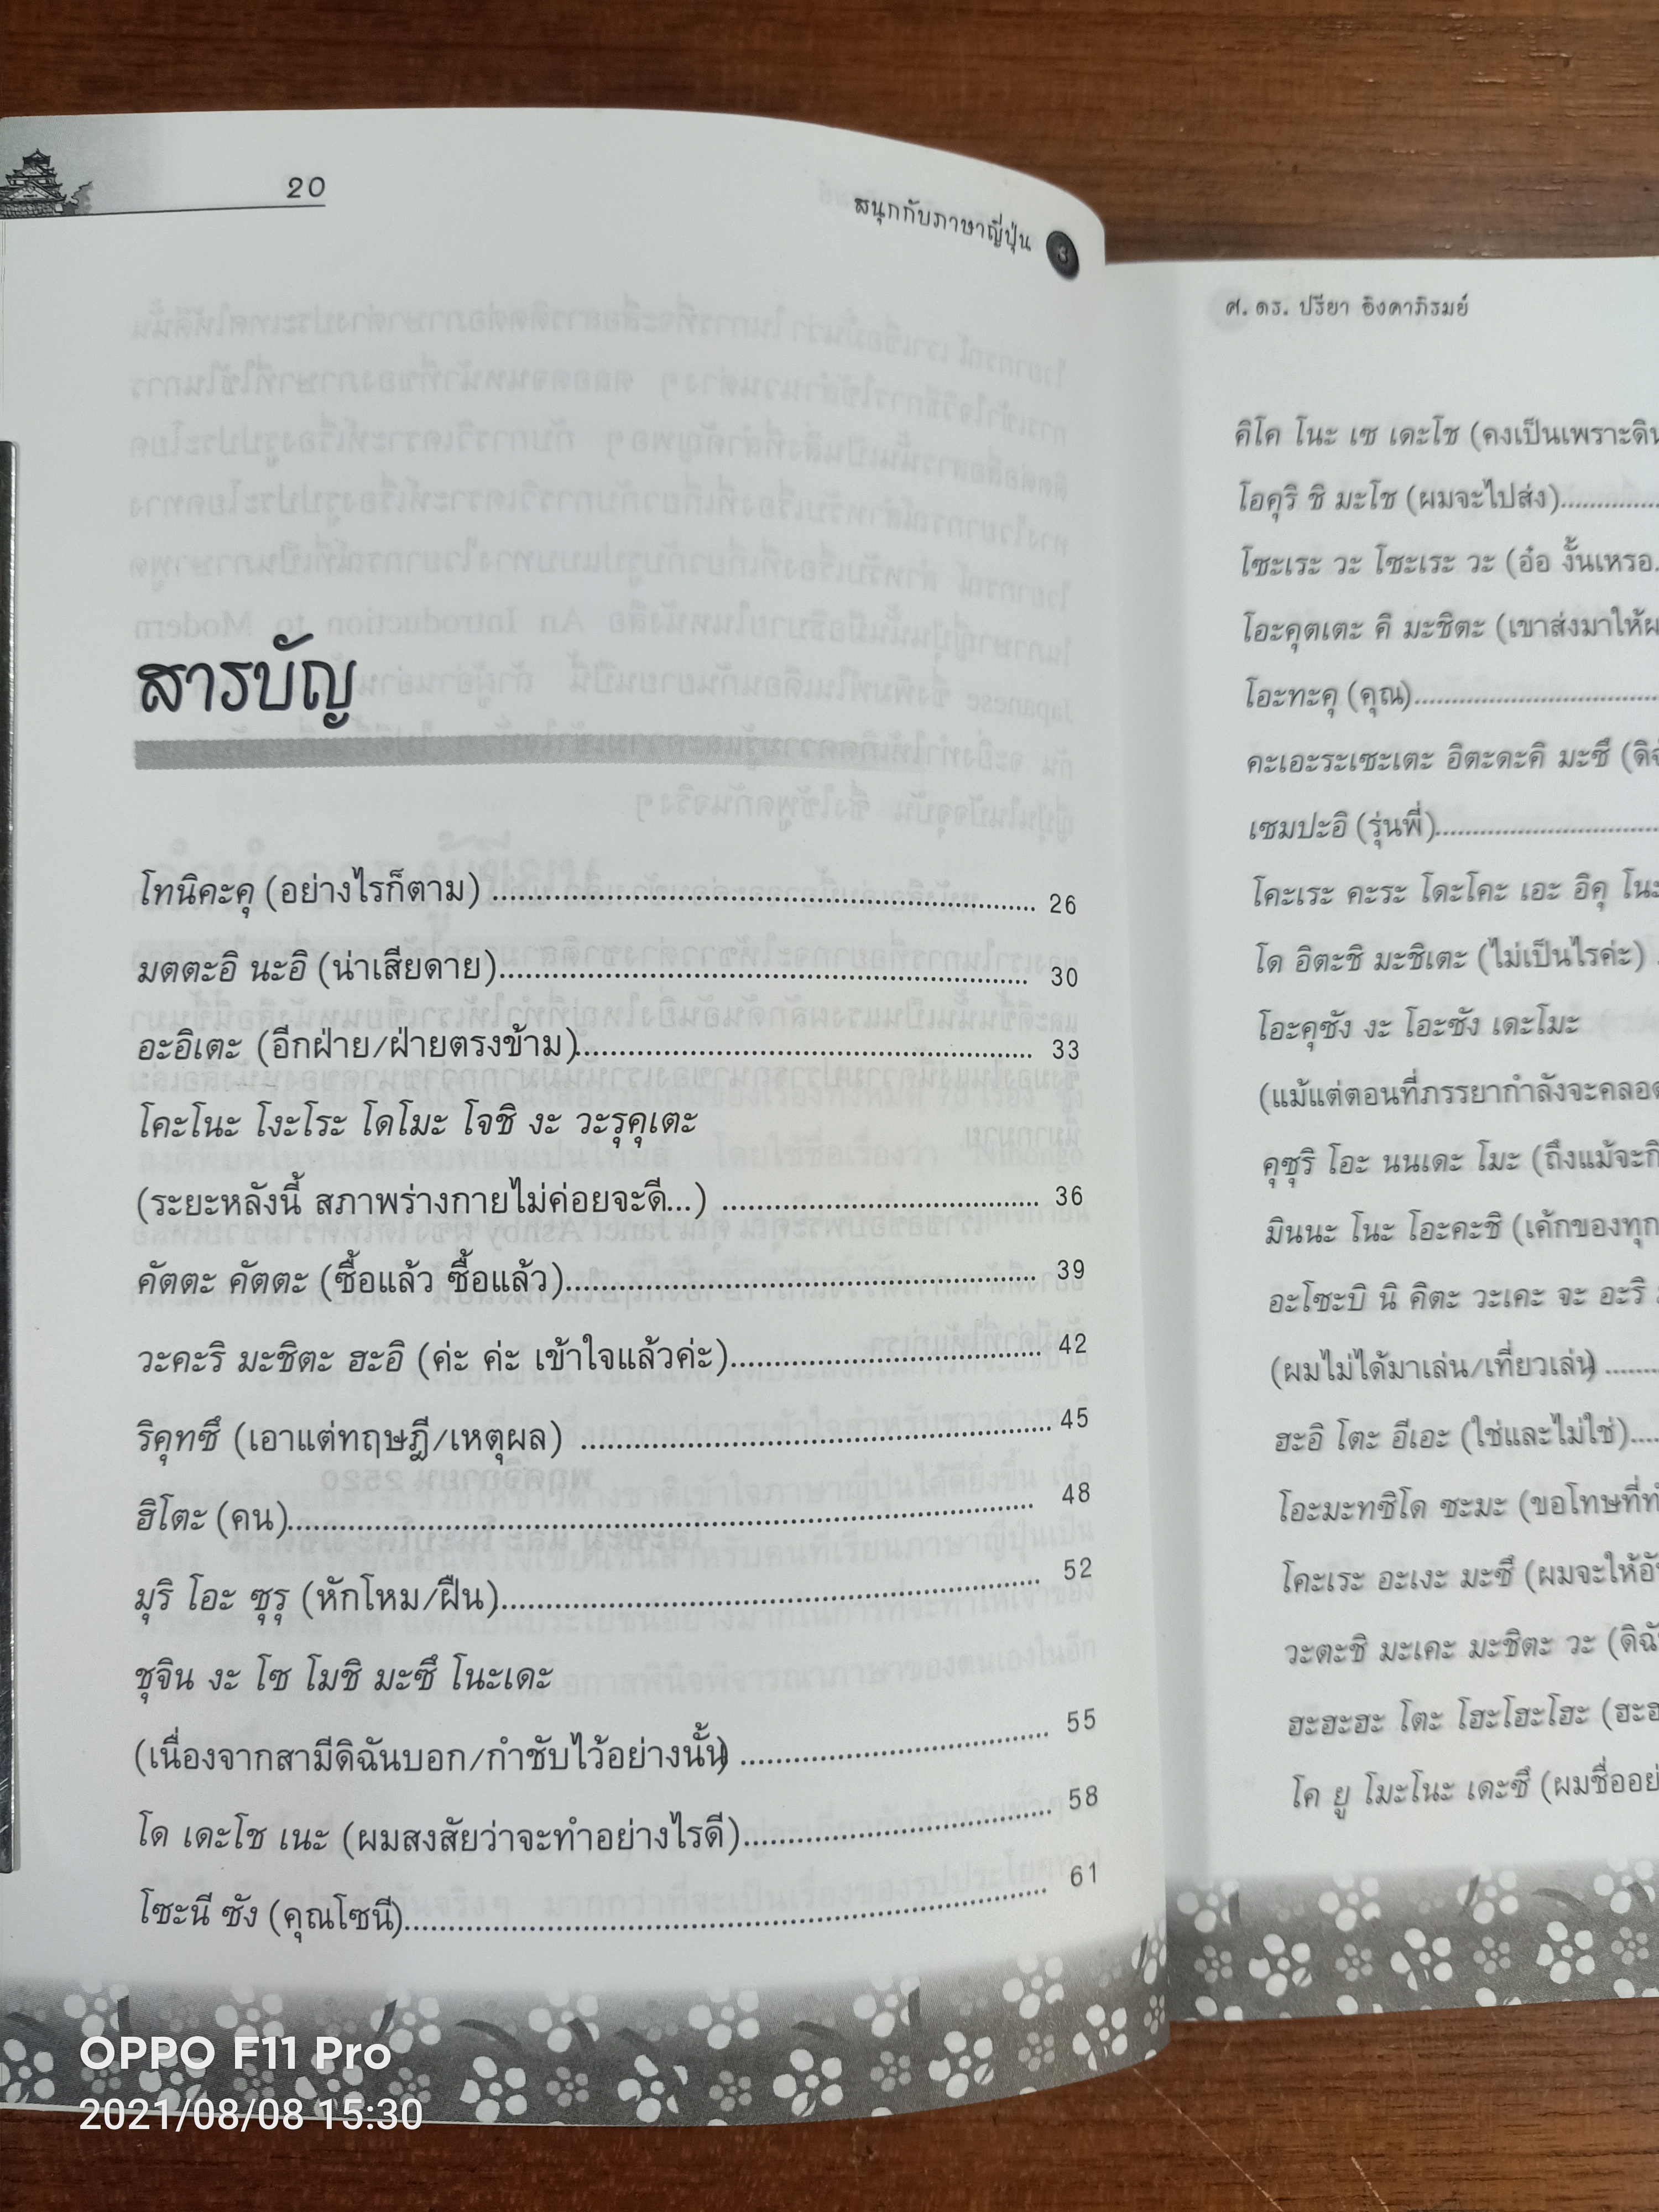 20
สนุกกับภาษาญี่ปุ่น 3
สารบัญ
โทนิคะคุ (อย่างไรก็ตาม) ........ 26
มตตะอิ นะอิ (น่าเสียดาย)........ 30
อะอิเตะ (อีกฝ่าย/ฝ่ายตรงข้าม)........ 33
โคะโนะ โงะโระ โดโมะ โจชิ งะ วะรุคุเตะ
(ระยะหลังนี้ สภาพร่างกายไม่ค่อยจะดี...) ........ 36
คัตตะ คัตตะ (ซื้อแล้ว ซื้อแล้ว)........ 39
วะคะริ มะชิตะ ฮะอิ (ค่ะ ค่ะ เข้าใจแล้วค่ะ)........ 42
ริคุทซึ (เอาแต่ทฤษฎี/เหตุผล) ........ 45
ฮิโตะ (คน)........ 48
มุริ โอะ ซุรุ (หักโหม/ฝืน)........ 52
ชุจิน งะ โซ โมชิ มะซึ โนะเดะ
(เนื่องจากสามีดิฉันบอก/กำชับไว้อย่างนั้น) ........ 55
โด เดะโช เนะ (ผมสงสัยว่าจะทำอย่างไรดี)........ 58
โซะนี ซัง (คุณโซนี)........ 61
ศ. ดร. ปรียา อิงคาภิรมย์
คิโค โนะ เซ เดะโช (คงเป็นเพราะดิน
โอคุริ ชิ มะโช (ผมจะไปส่ง)........
โซะเระ วะ โซะเระ วะ (อ๋อ งั้นเหรอ.
โอะคุตเตะ คิ มะชิตะ (เขาส่งมาให้ผ
โอะทะคุ (คุณ)........
คะเอะระเซะเตะ อิตะดะคิ มะซึ (ดิฉั
เซมปะอิ (รุ่นพี่)........
โคะเระ คะระ โดะโคะ เอะ อิคุ โนะ
โด อิตะชิ มะชิเตะ (ไม่เป็นไรค่ะ) .
โอะคุซัง งะ โอะซัง เดะโมะ
(แม้แต่ตอนที่ภรรยากำลังจะคลอด
คุซุริ โอะ นนเดะ โมะ (ถึงแม้จะกิ
มินนะ โนะ โอะคะชิ (เค้กของทุก
อะโซะบิ นิ คิตะ วะเคะ จะ อะริ
(ผมไม่ได้มาเล่น/เที่ยวเล่น) ........
ฮะอิ โตะ อีเอะ (ใช่และไม่ใช่)....
โอะมะทซิโด ซะมะ (ขอโทษที่ทำ
โคะเระ อะเงะ มะซึ (ผมจะให้อัน
วะตะชิ มะเคะ มะชิตะ วะ (ดิฉั
ฮะฮะฮะ โตะ โฮะโฮะโฮะ (ฮะฮ
โค ยู โมะโนะ เดะซึ (ผมชื่ออย่
OPPO F11 Pro
2021/08/08 15:30